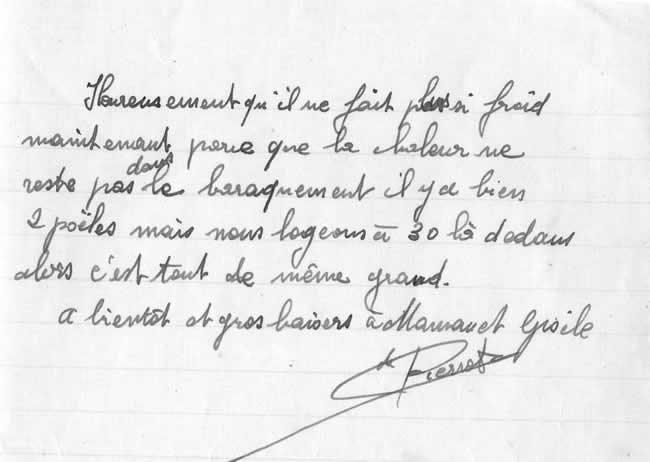 Heureusement qu'il ne fait plus si froid
maintenant parce que la chaleur ne
reste pas dans le baraquement il y a bien
2 poëles mais nous logeons à 30 là dedans
alors c'est tout de même grand.
A bientôt et gros baisers à Maman et Gisèle
de Pierrot